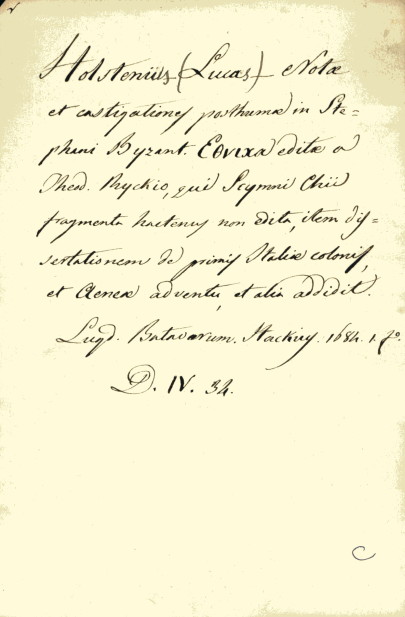 Holstenius (Lucas) Notæ
et castigationes posthumæ in Ste=
phani Byzant. Εθνικα editæ a
Theod. Ryckio, qui Scymni Chii
fragmenta hactenus non edita, item dis=
sertationem de primis Italiæ colonis,
et Aeneæ adventu, et alia addidit.
Lugd. Batavarum. Hackius. 1684. 1. fo.
D. IV. 34.
C